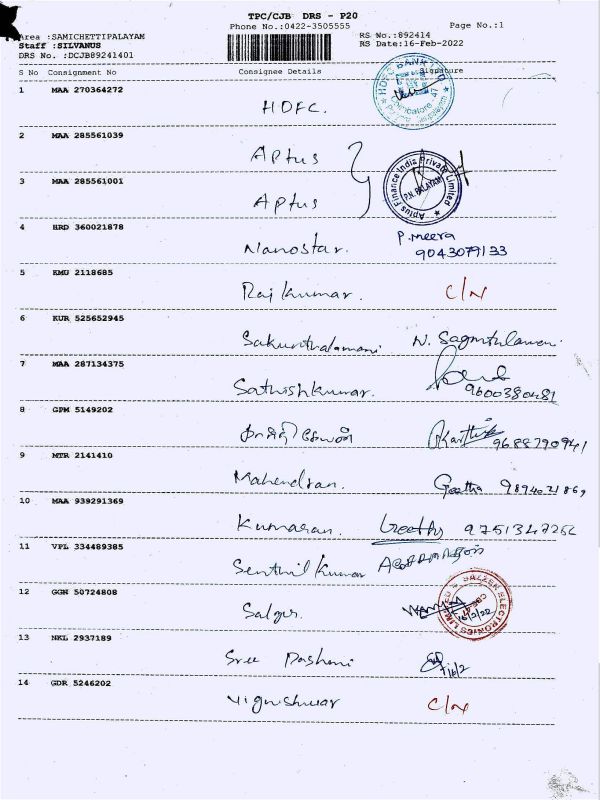 TPC/CJB DRS - P20
Phone No.:0422-3505555 Page No.:1
Area :SAMICHETTIPALAYAM RS No.:892414
Staff :SILVANUS RS Date:16-Feb-2022
DRS No. :DCJB89241401
S No Consignment No Consignee Details Signature
1 MAA 270364272 HDFC. HDFC BANK Coimbatore 47
2 MAA 285561039 Aptus
3 MAA 285561001 Aptus Aptus Finance India Private Limited P.N. PALAYAM
4 HRD 360021878 Nanostar. P. Meera 9043079133
5 KMU 2118685 Rajkumar. C/N
6 KUR 525652945 Sakunthalamani N.
7 MAA 287134375 Sathishkumar. 9600380481
8 GPM 5149202 கார்த்திகேயன் Karthik 9688790941
9 MTR 2141410 Mahendran. Geetha
10 MAA 939291369 Kumaran. Geetha
11 VPL 334489385 Senthil Kumar
12 GGN 50724808 Salzer. SALZER ELECTRONICS LIMITED 16/2/22
13 NKL 2937189 Sree 16/2
14 GDR 5246202 Vigneshwar C/N